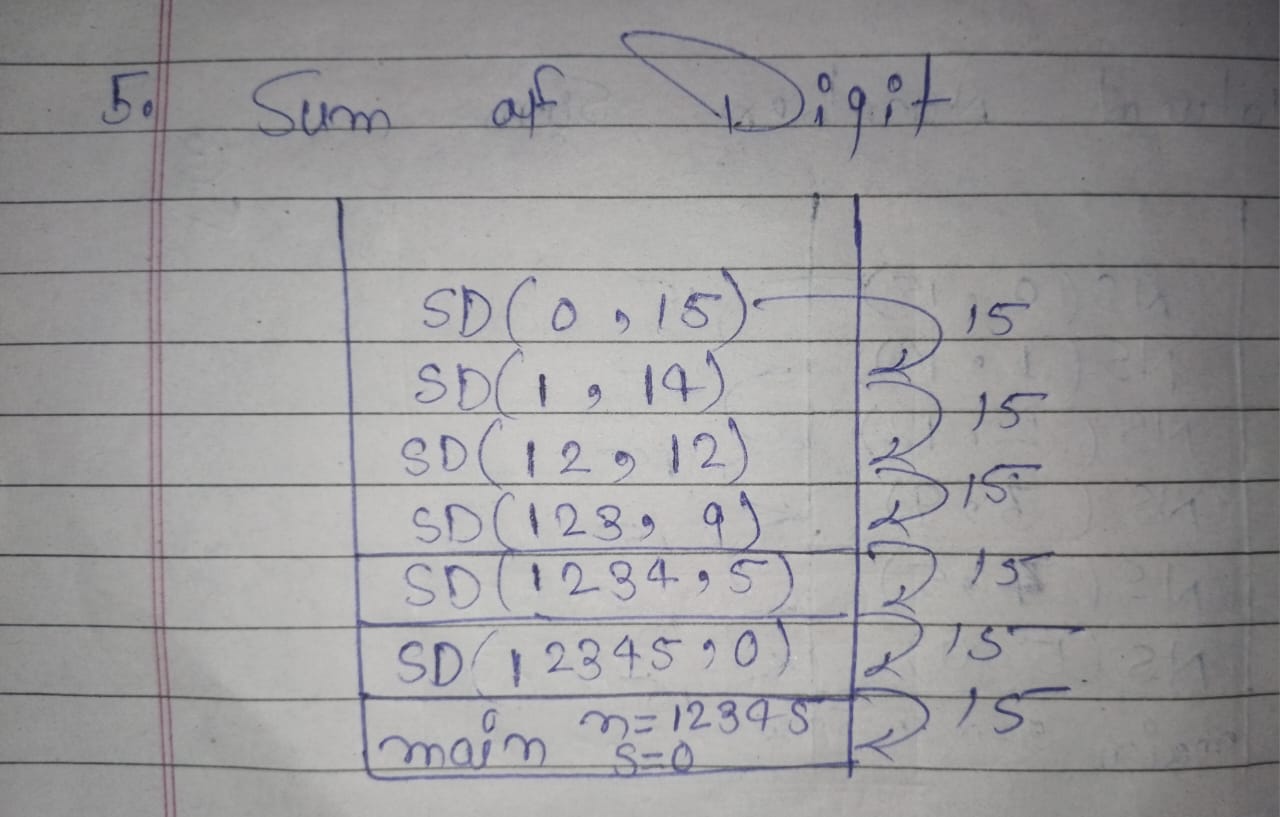 5. Sum of Digit
SD(0, 15) 15
SD(1, 14) 15
SD(12, 12) 15
SD(123, 9) 15
SD(1234, 5) 15
SD(12345, 0) 15
main n=12345
s=0